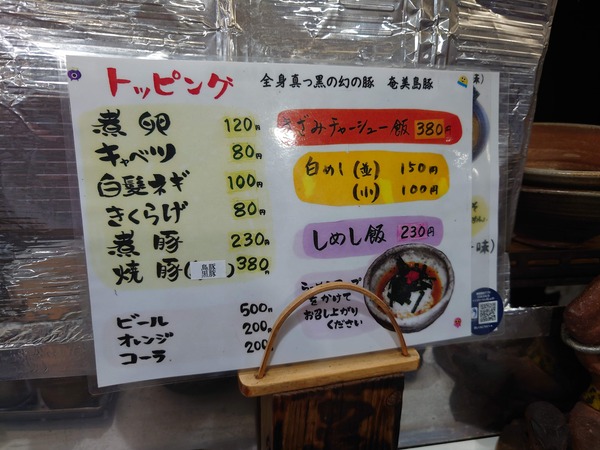 トッピング
全身真っ黒の幻の豚 奄美島豚
煮卵 120円
キャベツ 80円
白髪ネギ 100円
きくらげ 80円
煮豚 230円
焼豚( 島豚 黒豚 ) 380円
ビール 500円
オレンジ 200円
コーラ 200
きざみチャーシュー飯 380円
白めし (並) 150円
(小) 100円
しめし飯 230円
をかけて
お召し上がり
ください